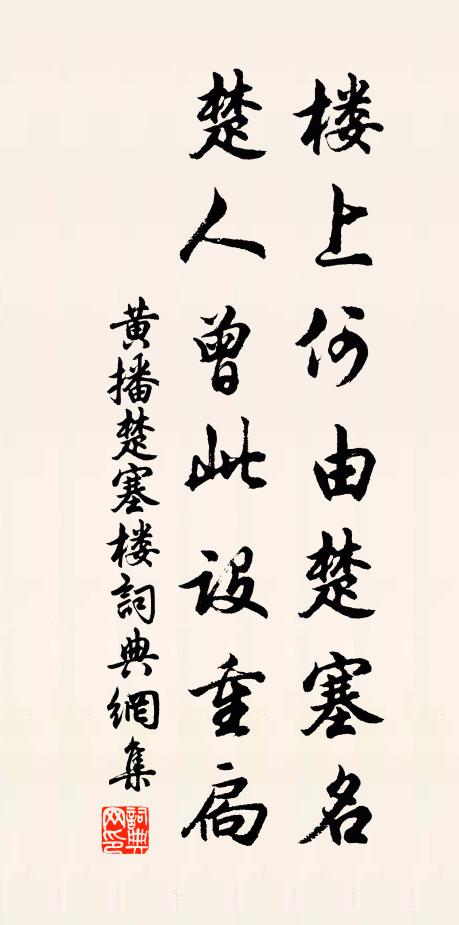 楼上何由楚塞名
楚人曾此设重扃
黄播楚塞楼詞典網集
詞典网印